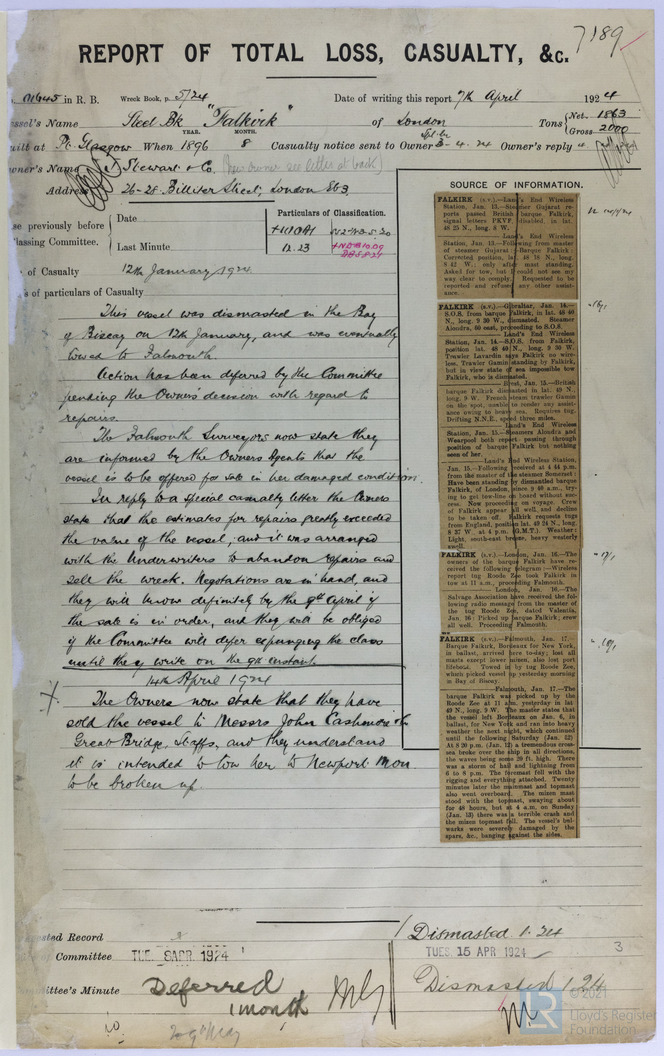 7189
REPORT OF TOTAL LOSS, CASUALTY, &c.
in R. B. Wreck Book, p. 5/24 Date of writing this report 7th April 1924
ssel's Name Steel Bk "Falkirk" of London Tons { Net. 1863
Gross 2000
YEAR. MONTH.
uilt at Pt Glasgow When 1896 8 Casualty notice sent to Owner 3-4.24 Owner's reply 4
wner's Name J Stewart & Co. (New owner see letter at back)
Address 26-28 Billiter Street, London EC3
se previously before
lassing Committee. { Date
Last Minute
Particulars of Classification.
+100A1
12.23
of Casualty 12th January 1924
s of particulars of Casualty
This vessel was dismasted in the Bay
of Biscay on 12th January, and was eventually
towed to Falmouth.
Action has been deferred by the Committee
pending the Owners' decision with regard to
repairs.
The Falmouth Surveyors now state they
are informed by the Owners Agents that the
vessel is to be offered for sale in her damaged condition.
In reply to a special casualty letter the Owners
state that the estimates for repairs greatly exceeded
the value of the vessel, and it was arranged
with the Underwriters to abandon repairs and
sell the wreck. Negotations are in hand, and
they will know definitely by the 9th April if
the sale is in order, and they will be obliged
if the Committee will defer expunging the class
until they write on the 9th instant.
14th April 1924
X The Owners now state that they have
sold the vessel to Messrs John Cashmore
Great Bridge, Staffs, and they understand
it is intended to tow her to Newport Mon
to be broken up.
SOURCE OF INFORMATION.
FALKIRK (s.v.).—Land's End Wireless
Station, Jan. 13.—Steamer Gujarat re-
ports passed British barque Falkirk,
signal letters PKVF, disabled, in lat.
48 25 N., long. 8 W.
Land's End Wireless
Station, Jan. 13.—Following from master
of steamer Gujarat:—
Corrected position, lat. 48 16 N., long.
8 42 W.; only after mast standing.
Asked for tow, but I could not see my
way clear to comply. Requested to be
reported and refused any other assist-
ance.
FALKIRK (s.v.).—Gibraltar, Jan. 14.—
S.O.S. from barque Falkirk, in lat. 48 40
N., long. 9 30 W., dismasted. Steamer
Alondra, 50 east, proceeding to S.O.S.
Land's End Wireless
Station, Jan. 14.—S.O.S. from Falkirk,
position lat. 48 40 N., long. 9 50 W.
Trawler Lavardin says Falkirk no wire-
less. Trawler Gamin standing by Falkirk,
but in view state of sea impossible tow
Falkirk, who is dismasted.
Brest, Jan. 15.—British
barque Falkirk dismasted in lat. 49 N.,
long. 9 W. French steam trawler Gamin
on the spot, unable to render any assist-
ance owing to heavy sea. Requires tug.
Drifting N.N.E., speed three miles.
Land's End Wireless
Station, Jan. 15.—Steamers Alondra and
Wearpool both report passing through
position of barque Falkirk but nothing
seen of her.
Land's End Wireless Station,
Jan. 15.—Following received at 4 44 p.m.
from the master of the steamer Somerset:
Have been standing by dismantled barque
Falkirk, of London, since 9 40 a.m., try-
ing to get tow-line on board without suc-
cess. Now proceeding on voyage. Crew
of Falkirk appear all well, and decline
to be taken off. Falkirk requests tugs
from England, position lat. 49 24 N., long.
8 37 W. at 4 p.m. (G.M.T.). Weather:
Light, south-east breeze, heavy westerly
swell.
FALKIRK (s.v.).—London, Jan. 16.—The
owners of the barque Falkirk have re-
ceived the following telegram:—Wireless
report tug Roode Zee took Falkirk in
tow at 11 a.m., proceeding Falmouth.
London, Jan. 16.—The
Salvage Association have received the fol-
lowing radio message from the master of
the tug Roode Zee, dated Valentia,
Jan. 16: Picked up barque Falkirk; crew
all well. Proceeding Falmouth.
FALKIRK (s.v.).—Falmouth, Jan. 17.—
Barque Falkirk, Bordeaux for New York,
in ballast, arrived here to-day, but all
masts except lower mizen, also lost port
lifeboat. Towed in by tug Roode Zee,
which picked vessel up yesterday morning
in Bay of Biscay.
Falmouth, Jan. 17.—The
barque Falkirk was picked up by the
Roode Zee at 11 a.m. yesterday in lat
49 N., long. 9 W. The master states that
the vessel left Bordeaux on Jan. 6, in
ballast, for New York and ran into heavy
weather the next night, which continued
until the following Saturday (Jan. 12)
At 8 20 p.m. (Jan. 12) a tremendous cross-
sea broke over the ship in all directions,
the waves being some 29 ft. high. There
was a storm of hail and lightning from
6 to 8 p.m. The foremast fell with the
rigging and everything attached. Twenty
minutes later the mainmast and topmast
also went overboard. The mizen mast
stood with the topmast, swaying about
for 48 hours, but at 4 a.m. on Sunday
(Jan. 13) there was a terrible crash and
the mizen topmast fell. The vessel's bul-
warks were severely damaged by the
spars, &c., banging against the sides.
ested Record
Dismasted 1.24
of Committee TUE. 8 APR. 1924
TUES. 15 APR 1924
3
mittee's Minute Deferred
1 month
Dismasted 1.24
LR
© 2021
Lloyd's Register
Foundation